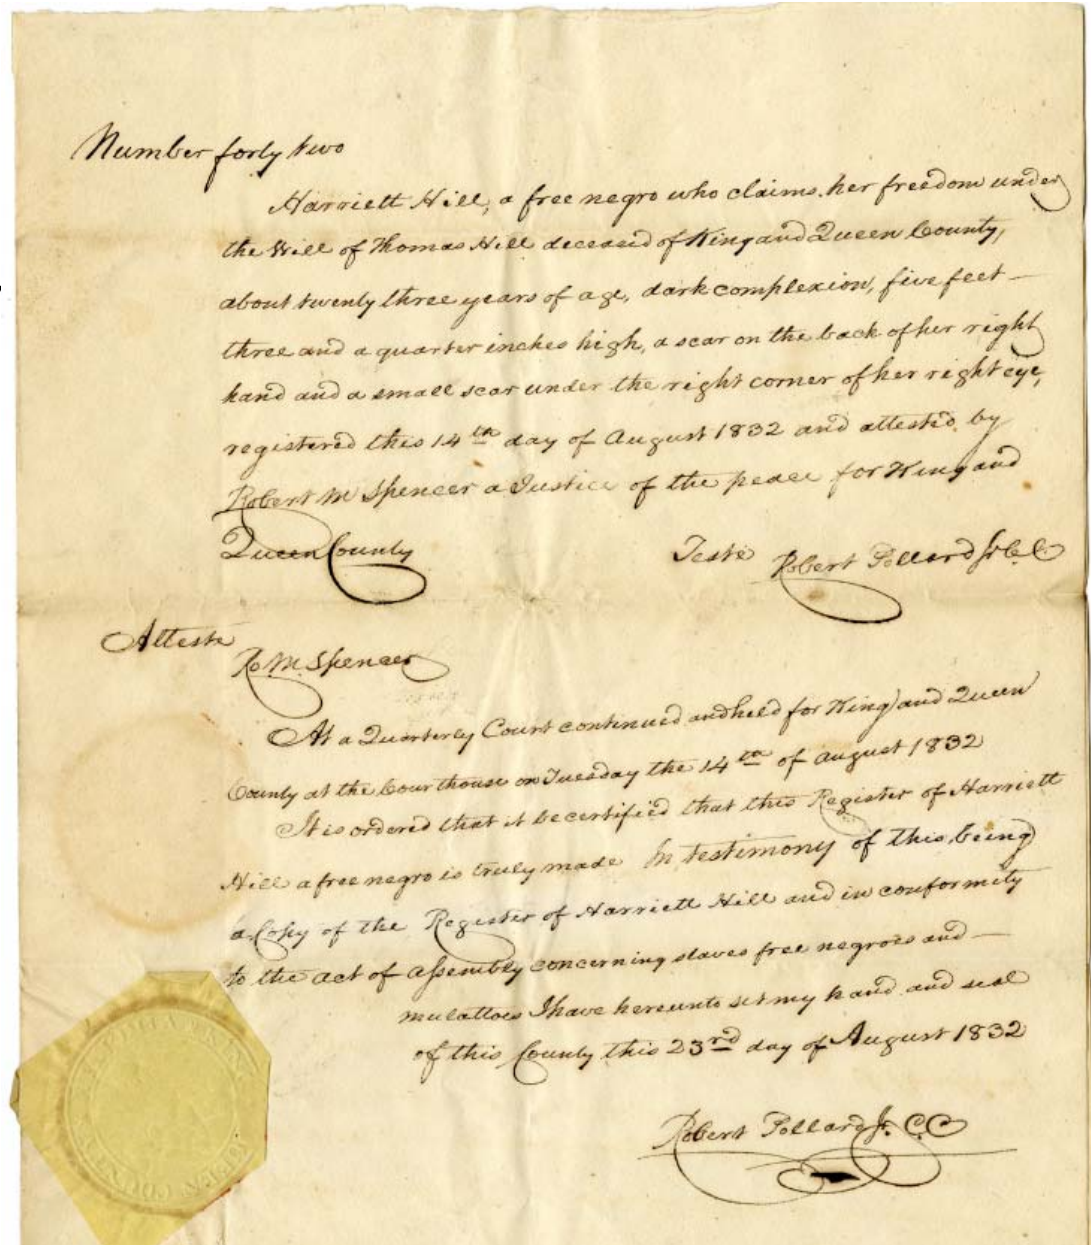 Number forty two
Harriett Hill, a free negro who claims her freedom under
the Will of Thomas Hill deceased of King and Queen County,
about twenty three years of age, dark complexion, five feet —
three and a quarter inches high, a scar on the back of her right
hand and a small scar under the right corner of her right eye,
registered this 14th day of August 1832 and attested by
Robert M Spencer a Justice of the peace for King and
Queen County
Teste Robert Pollard Jr C. C
Atteste
Ro. M. Spencer
At a Quarterly Court continued and held for King and Queen
County at the Courthouse on Tuesday the 14th of August 1832
It is ordered that it be certified that this Register of Harriett
Hill a free negro is truly made In testimony of this being
a Copy of the Register of Harriett Hill and in conformity
to the act of assembly concerning slaves free negroes and —
mulattoes I have hereunto set my hand and seal
of this County this 23rd day of August 1832
Robert Pollard Jr. C C